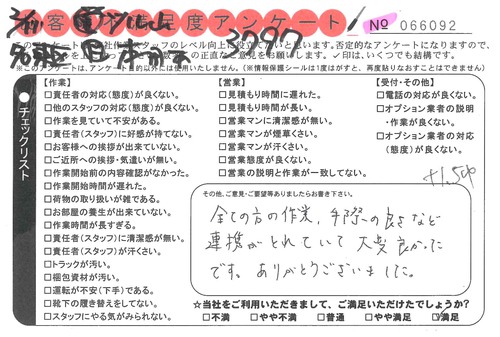 お客様満足度アンケート
3797
№ 066092
このアンケートは当社作業スタッフのレベル向上に役立てたいと思います。否定的なアンケートになりますので、
お気持の正直なご意見をお願いします。✓印は、いくつでも結構です。
※このアンケートは、アンケート目的以外には使用いたしません。(※情報保護シールは1度はがすと、再度貼りなおすことはできません)
●チェックリスト
【作業】
□責任者の対応(態度)が良くない。
□他のスタッフの対応(態度)が良くない。
□作業を見ていて不安がある。
□責任者(スタッフ)に好感が持てない。
□お客様への挨拶が出来ていない。
□ご近所への挨拶・気遣いが無い。
□作業開始前の内容確認がなかった。
□作業開始時間が遅れた。
□荷物の取り扱いが雑である。
□お部屋の養生が出来ていない。
□作業時間が長すぎる。
□責任者(スタッフ)に清潔感が無い。
□責任者(スタッフ)が汗くさい。
□トラックが汚い。
□梱包資材が汚い。
□運転が不安(下手)である。
□靴下の履き替えをしてない。
□スタッフにやる気がみられない。
【営業】
□見積もり時間に遅れた。
□見積もり時間が長い。
□営業マンに清潔感が無い。
□営業マンが煙草くさい。
□営業マンが汗くさい。
□営業態度が良くない。
□営業の説明と作業が一致してない。
【受付・その他】
□電話の対応が良くない。
□オプション業者の説明
・作業が良くない。
□オプション業者の対応
(態度)が良くない。
+1,500
その他、ご意見・ご要望等ありましたらお書き下さい。
全ての方の作業、手際の良さなど
連携がとれていて大変良かった
です。ありがとうございました。
☆当社をご利用いただきまして、ご満足いただけたでしょうか?
□不満 □やや不満 □普通 □やや満足 ☑満足